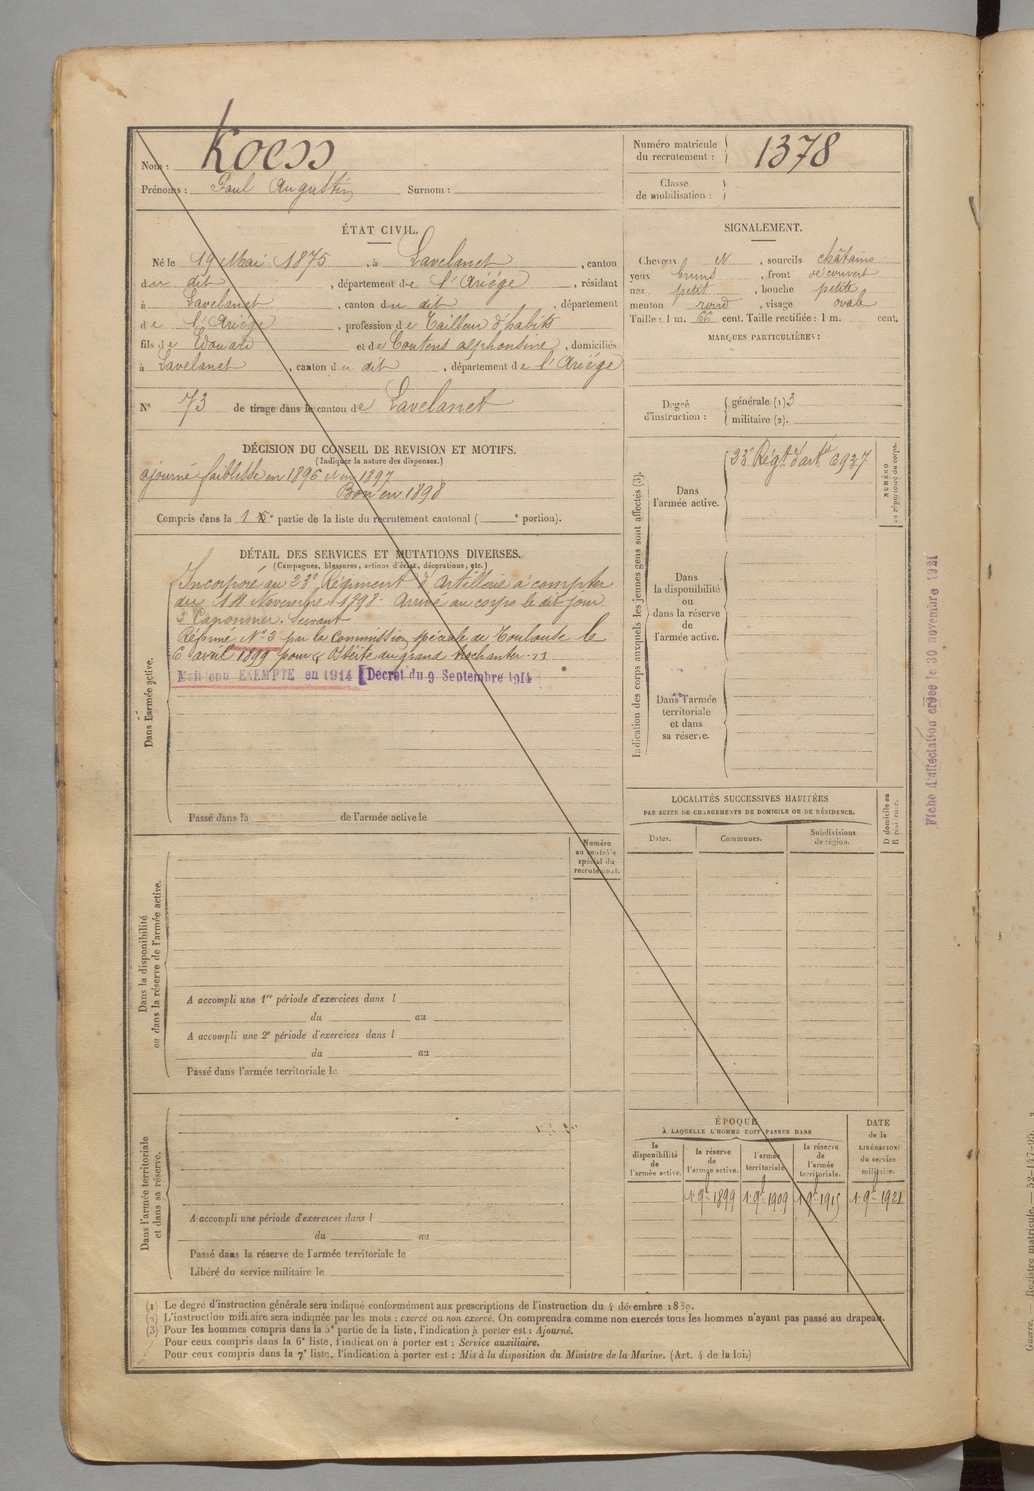 Nom : Koess
Prénoms : Paul Augustin Surnom :
Numéro matricule du recrutement : 1378
Classe de mobilisation :
ÉTAT CIVIL.
Né le 19 Mai 1875, à Lavelanet, canton
du dit, département de l'Ariège, résidant
à Lavelanet, canton du dit, département
de l'Ariège, profession de Tailleur d'habits
fils de Edouard et de Coutens alphonsine, domiciliés
à Lavelanet, canton du dit, département de l'Ariège
N° 73 de tirage dans le canton de Lavelanet
SIGNALEMENT.
Cheveux N, sourcils châtains
yeux bruns, front découvert
nez petit, bouche petite
menton rond, visage ovale
Taille : 1 m. 66 cent. Taille rectifiée : 1 m. cent.
MARQUES PARTICULIÈRES :
Degré d'instruction : générale (1) 3
militaire (2).
DÉCISION DU CONSEIL DE REVISION ET MOTIFS.
(Indiquer la nature des dispenses.)
ajourné faiblesse en 1896 et en 1897
Bon en 1898
Compris dans la 1e partie de la liste du recrutement cantonal ( e portion).
DÉTAIL DES SERVICES ET MUTATIONS DIVERSES.
(Campagnes, blessures, actions d'éclat, décorations, etc.)
Dans l'armée active.
Incorporé au 23e Régiment d'Artillerie à compter
du 14 Novembre 1898. Arrivé au corps le dit jour
2e Canonnier. Servant
Réformé N° 2 par la Commission spéciale de Toulouse le
6 avril 1899 pour
du grand trochanter
Maintenu EXEMPTÉ en 1914 Décret du 9 Septembre 1914
Passé dans la de l'armée active le
Indication des corps auxquels les jeunes gens sont affectés (3).
Dans l'armée active. 23e Régt d'art. 6937
NUMÉRO au répertoire du corps.
Dans la disponibilité ou dans la réserve de l'armée active.
Dans l'armée territoriale et dans sa réserve.
Fiche d'affectation créée le 30 novembre 1921
LOCALITÉS SUCCESSIVES HABITÉES
PAR SUITE DE CHANGEMENTS DE DOMICILE OU DE RÉSIDENCE.
Dates. Communes. Subdivisions de région. D domicile ou R résidence.
Numéro au contrôle spécial du recrutement.
Dans la disponibilité ou dans la réserve de l'armée active.
A accompli une 1re période d'exercices dans l
du au
A accompli une 2e période d'exercices dans l
du au
Passé dans l'armée territoriale le
Dans l'armée territoriale et dans sa réserve.
A accompli une période d'exercices dans l
du au
Passé dans la réserve de l'armée territoriale le
Libéré du service militaire le
ÉPOQUE
À LAQUELLE L'HOMME DOIT PASSER DANS
la disponibilité de l'armée active.
la réserve de l'armée active.
l'armée territoriale.
la réserve de l'armée territoriale.
DATE de la LIBÉRATION du service militaire.
1 9bre 1899 1 9bre 1909 1 9bre 1915 1 9bre 1921
(1) Le degré d'instruction générale sera indiqué conformément aux prescriptions de l'instruction du 4 décembre 1889.
(2) L'instruction militaire sera indiquée par les mots : exercé ou non exercé. On comprendra comme non exercés tous les hommes n'ayant pas passé au drapeau.
(3) Pour les hommes compris dans la 5e partie de la liste, l'indication à porter est : Ajourné.
Pour ceux compris dans la 6e liste, l'indication à porter est : Service auxiliaire.
Pour ceux compris dans la 7e liste, l'indication à porter est : Mis à la disposition du Ministre de la Marine. (Art. 4 de la loi.)